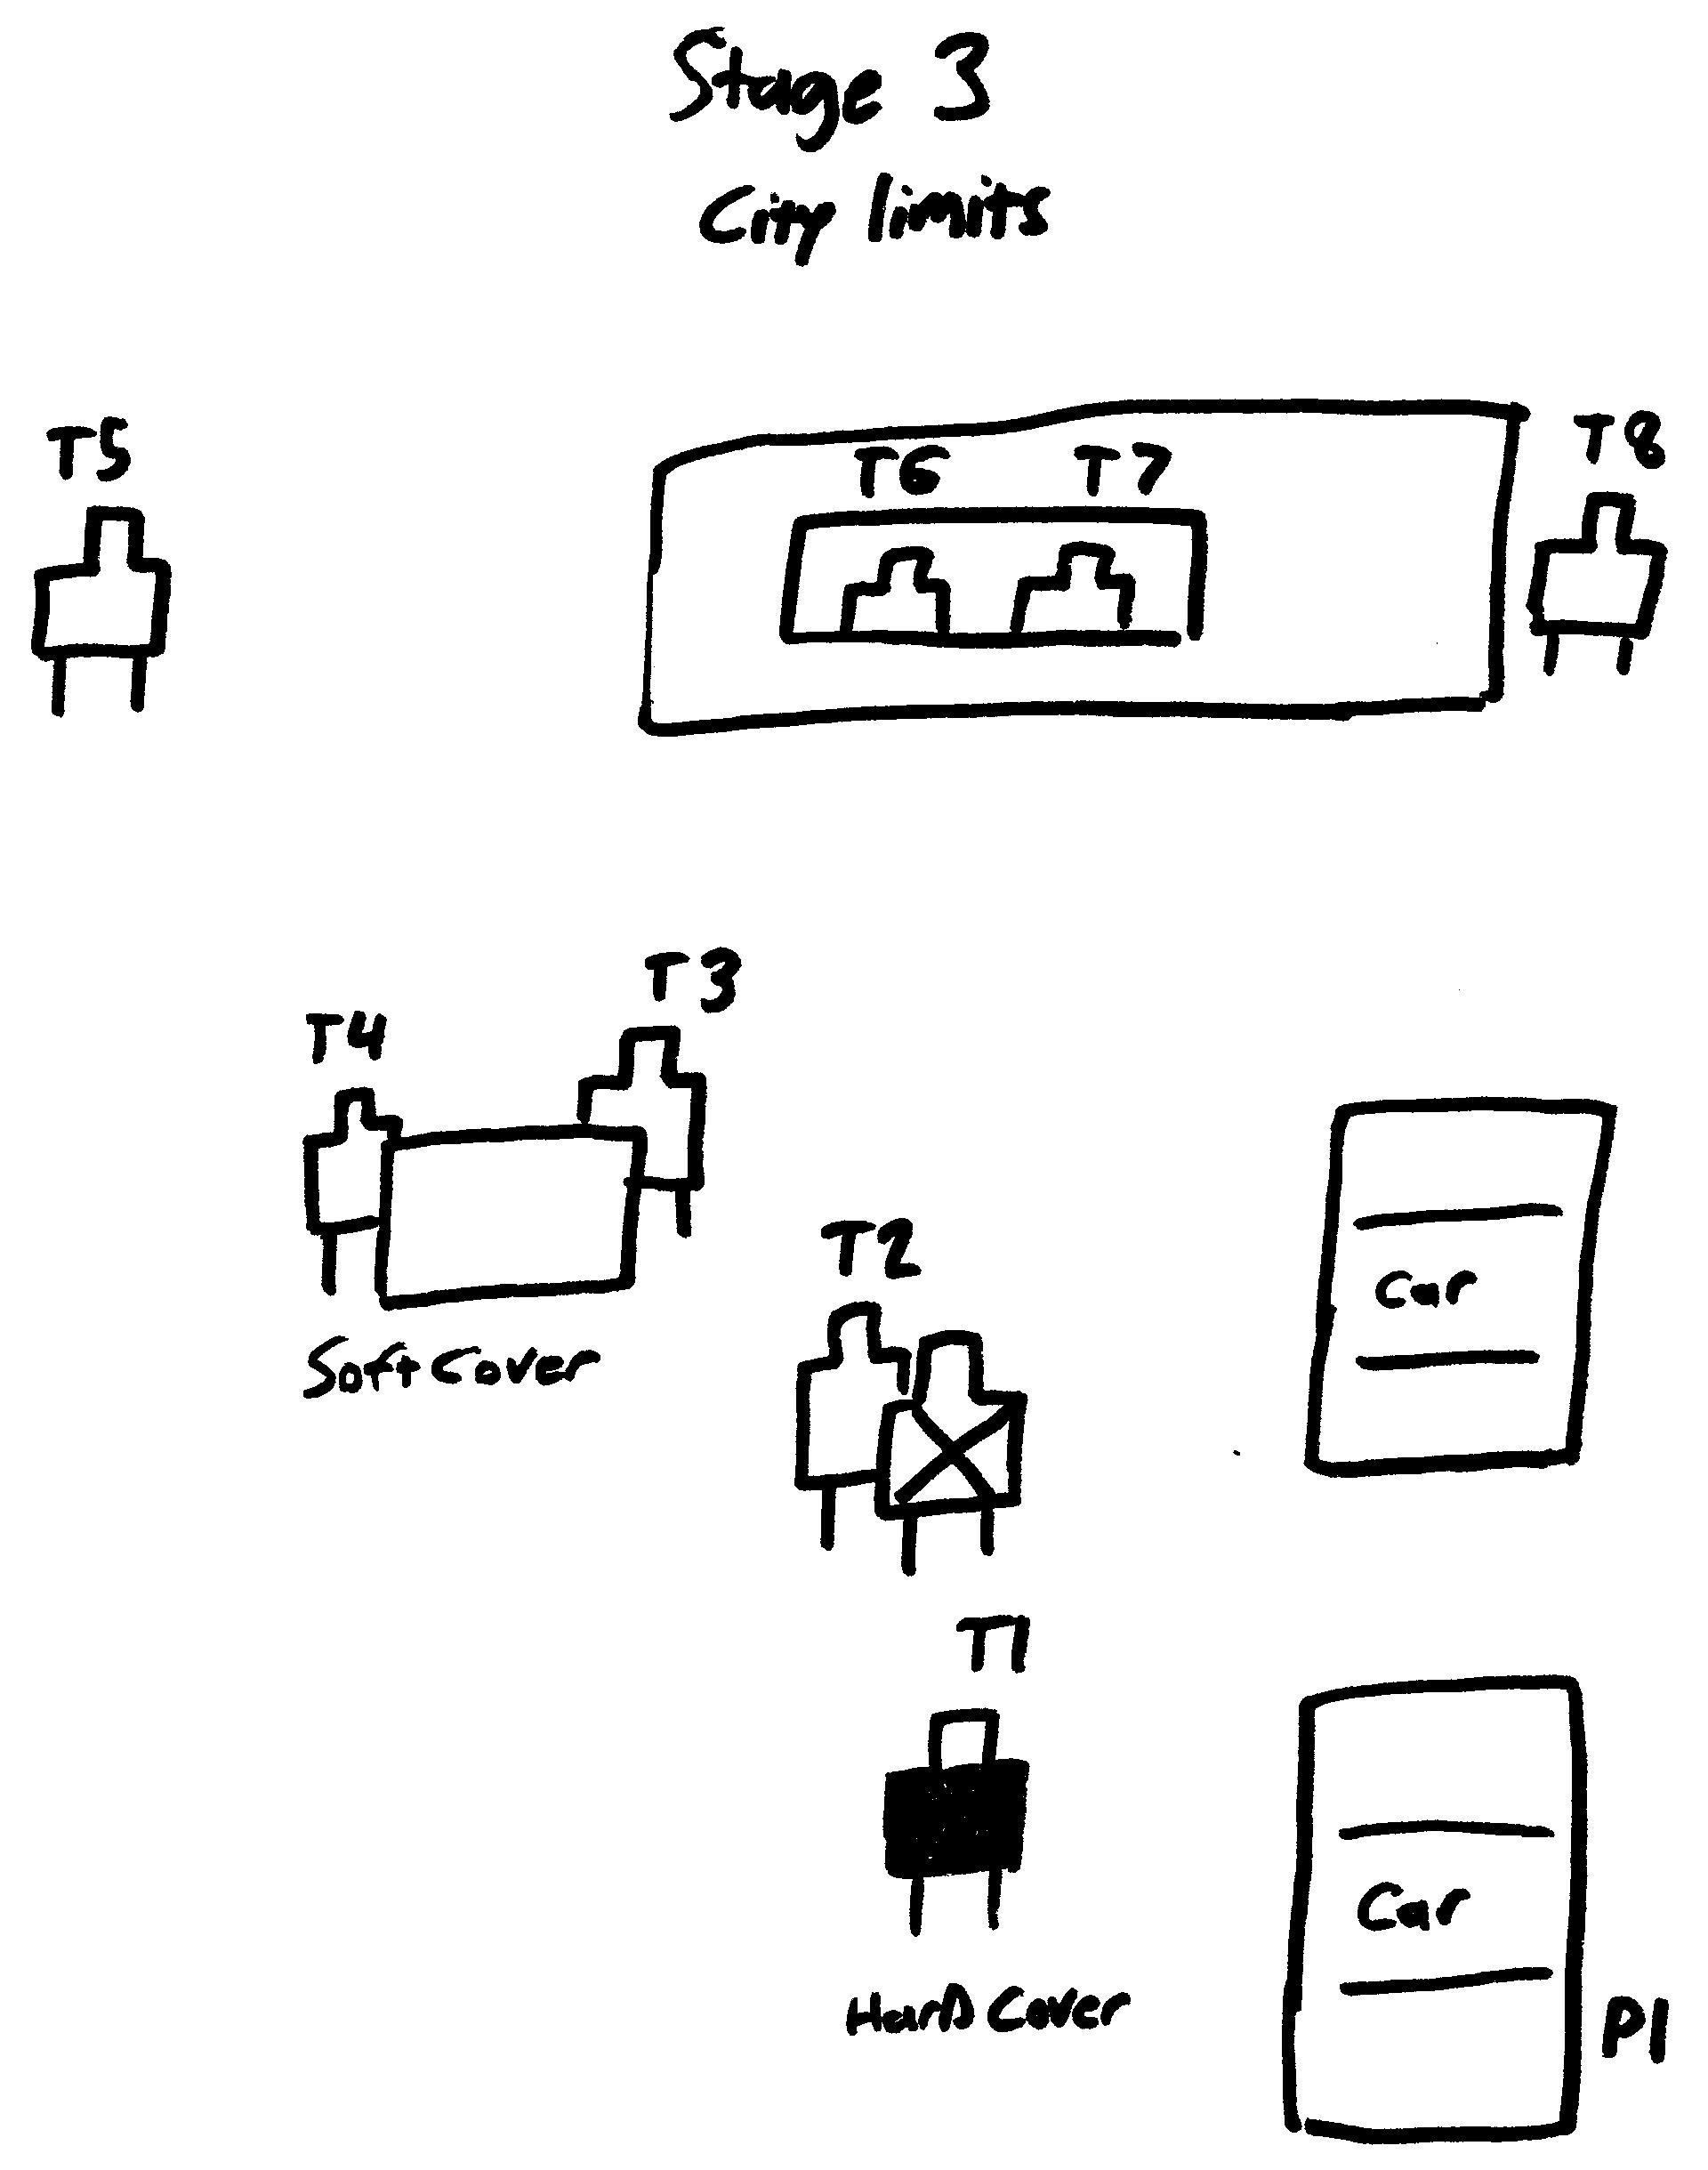 Stage 3
City limits
T5
T6
T7
T8
T3
T4
T2
Car
Soft Cover
T1
Car
HarD Cover
P1